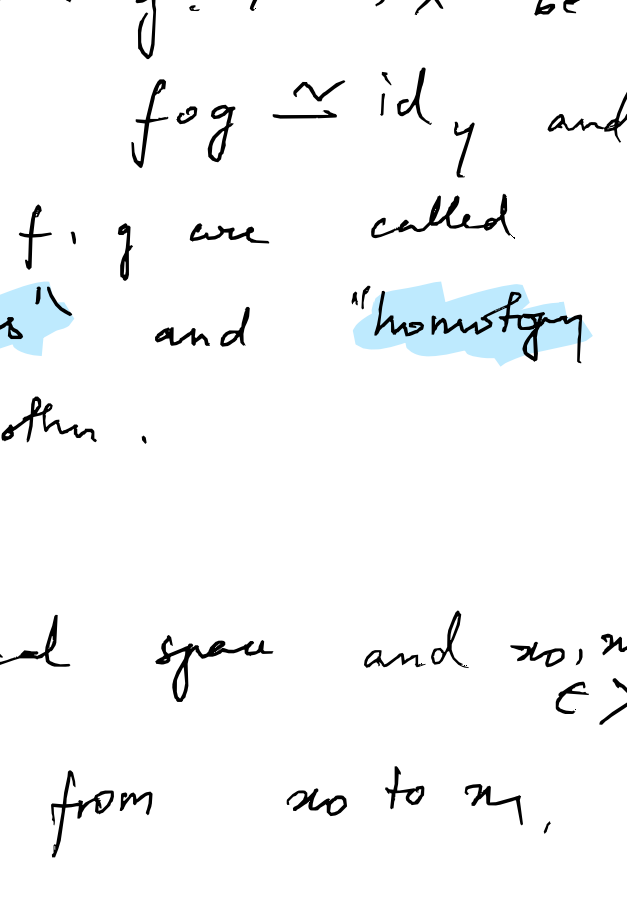 be
f o g ≃ id_Y and
f, g are called
s" and "homotopy
other.
space and x0, x
∈ X
from x0 to x1,